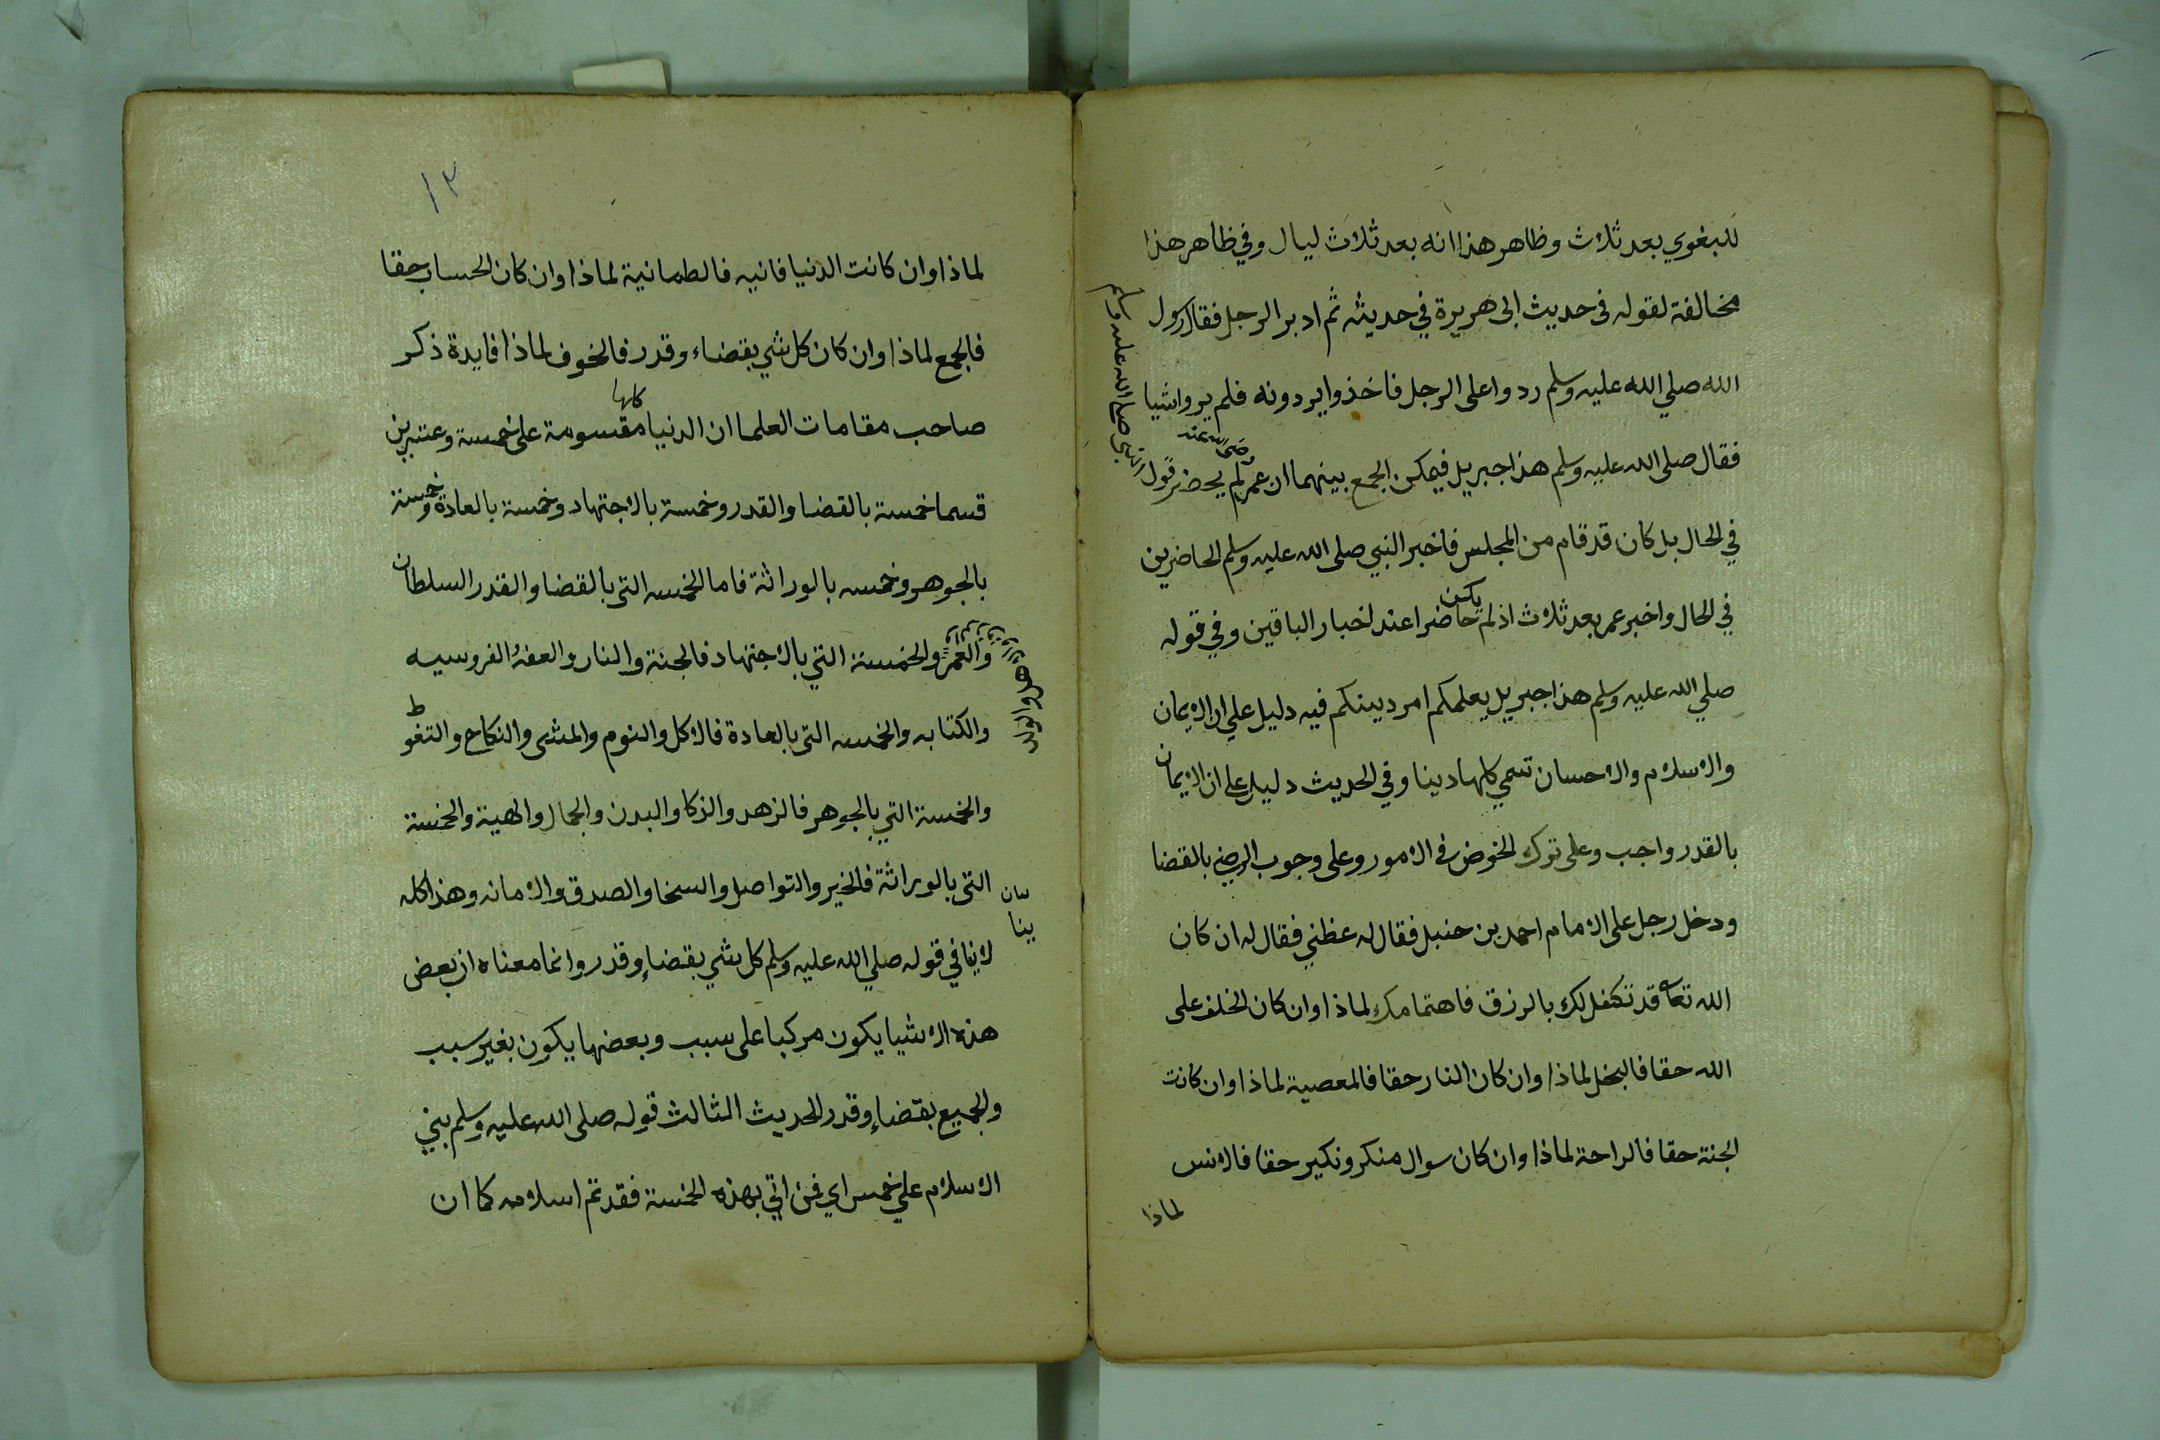 للبغوي بعد ثلاث وظاهر هذا انه بعد ثلاث ليال وفي ظاهر هذا
مخالفة لقوله في حديث ابي هريرة في حديثه ثم ادبر الرجل فقال رسول
الله صلي الله عليه وسلم ردوا على الرجل فاخذوا يردونه فلم يروا شيا
فقال صلى الله عليه وسلم هذا جبريل فيمكن الجمع بينهما ان عمر رضي الله عنه لم يحضر قول النبي صلى الله عليه وسلم
في الحال بل كان قد قام من المجلس فاخبر النبي صلى الله عليه وسلم الحاضرين
في الحال واخبر عمر بعد ثلاث اذ لم يكن حاضرا عند اخبار الباقين وفي قوله
صلي الله عليه وسلم هذا جبريل يعلمكم امر دينكم فيه دليل علي ان الايمان
والاسلام والاحسان تسمي كلها دينا وفي الحديث دليل على ان الايمان
بالقدر واجب وعلى ترك الخوض في الامور وعلى وجوب الرضي بالقضا
ودخل رجل على الامام احمد بن حنبل فقال له عظني فقال له ان كان
الله تعالى قد تكفل لك بالرزق فاهتمامك لماذا وان كان الخلف على
الله حقا فالبخل لماذا وان كان النار حقا فالمعصية لماذا وان كانت
الجنة حقا فالراحة لماذا وان كان سوال منكر ونكير حقا فالانس
لماذا
١٣
لماذا وان كانت الدنيا فانيه فالطمانية لماذا وان كان الحساب حقا
فالجمع لماذا وان كان كل شي بقضاء وقدر فالخوف لماذا فايدة ذكر
صاحب مقامات العلما ان الدنيا كلها مقسومة على خمسة وعشرين
قسما خمسة بالقضا والقدر وخمسة بالاجتهاد وخمسة بالعادة وخمسة
بالجوهر وخمسه بالوراثة فاما الخمسه التي بالقضا والقدر السلطان
والعمر والخمسة التي بالاجتهاد فالجنة والنار والعفة والفروسيه
والكتابه والخمسه التي بالعادة فالاكل والنوم والمشى والنكاح والتغوط
والخمسة التي بالجوهر فالزهد والذكا والبدن والجمال والهيبة والخمسة
التي بالوراثة فالخير والتواصل والسخا والصدق والامانه وهذا كله
لا ينافي قوله صلي الله عليه وسلم كل شي بقضاء وقدر وانما معناه ان بعض
هذه الاشيا يكون مركبا على سبب وبعضها يكون بغير سبب
والجميع بقضاء وقدر الحديث الثالث قوله صلى الله عليه وسلم بني
الاسلام علي خمس اي فمن اتي بهذه الخمسة فقد تم اسلامه كما ان